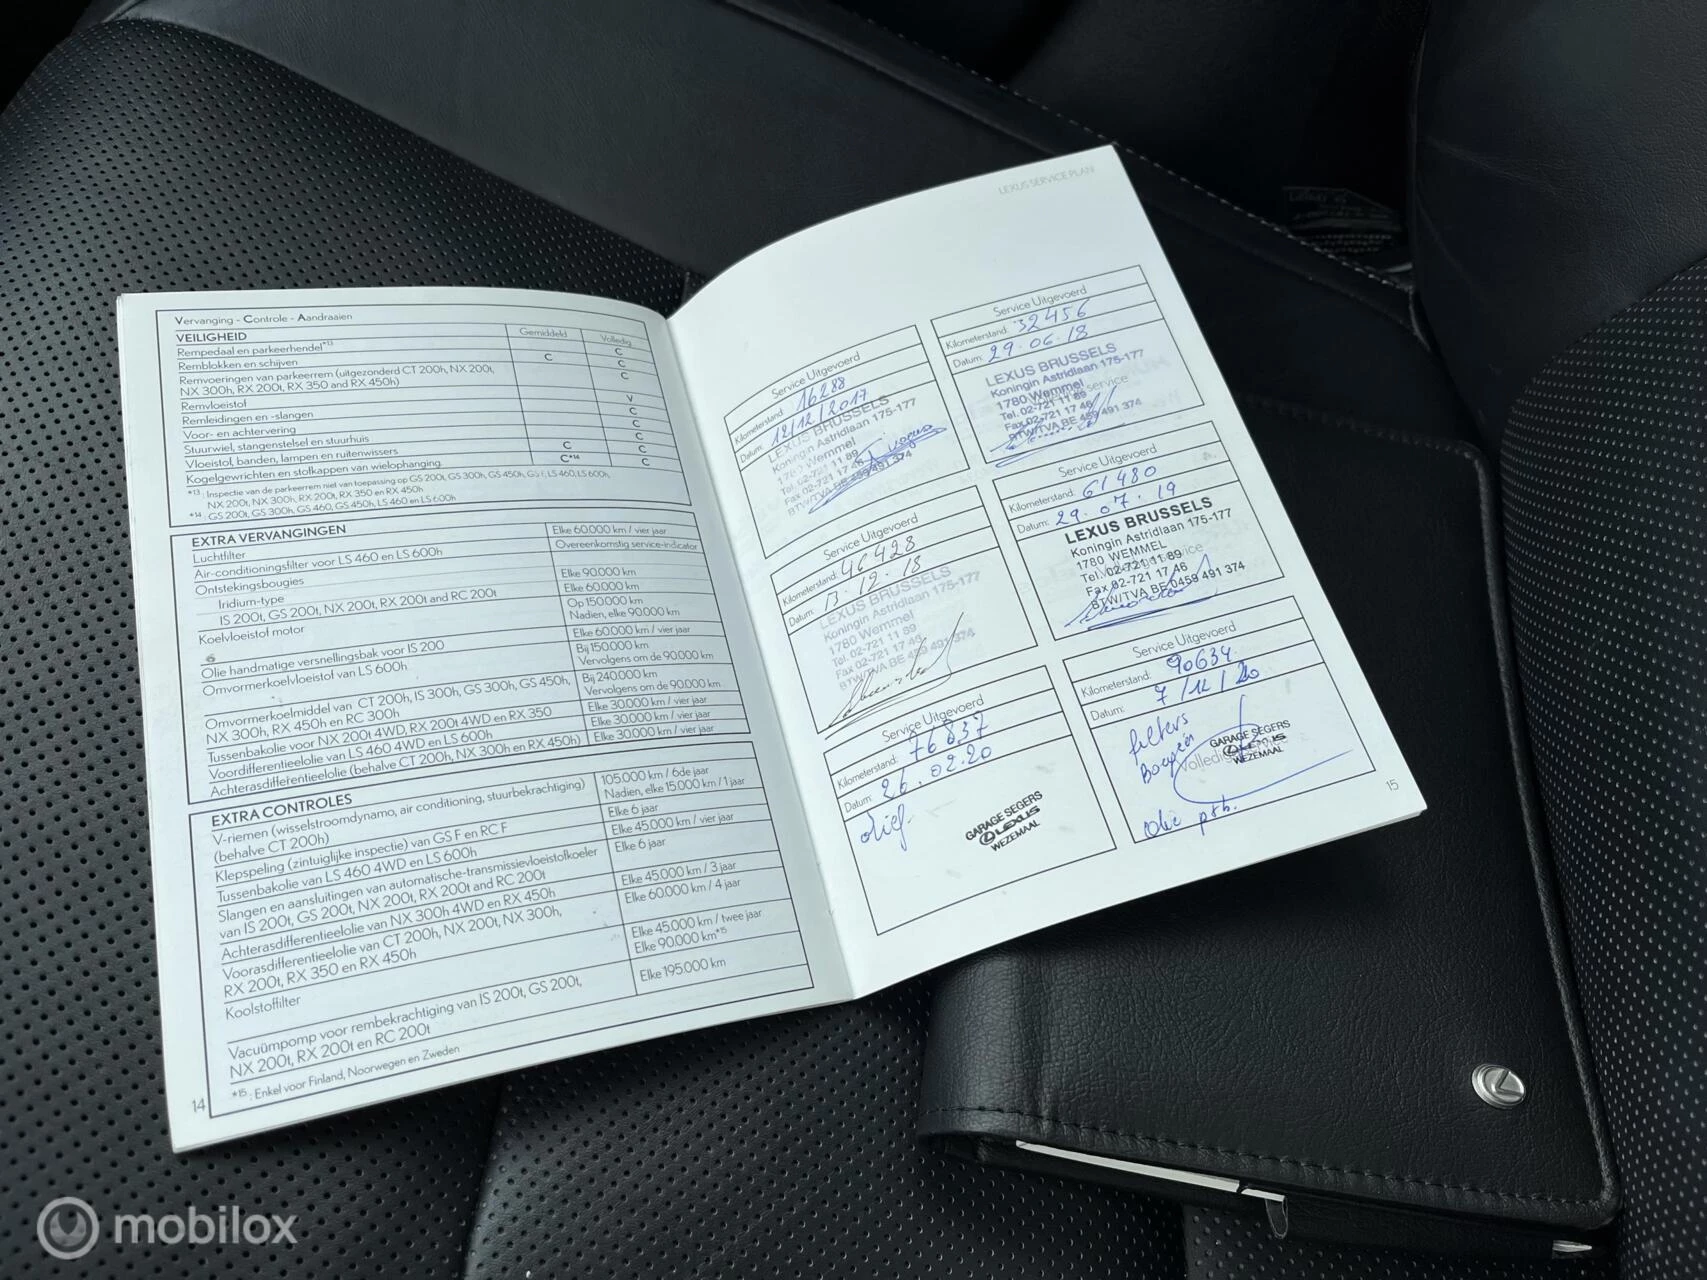 LEXUS SERVICE PLAN
Vervanging - Controle - Aandraaien
VEILIGHEID
Gemiddeld
Volledig
Rempedaal en parkeerhendel*13
C
Remblokken en schijven
C
C
Remvoeringen van parkeerrem (uitgezonderd CT 200h, NX 200t,
NX 300h, RX 200t, RX 350 and RX 450h)
C
Remvloeistof
V
Remleidingen en -slangen
C
Voor- en achtervering
C
Stuurwiel, stangenstelsel en stuurhuis
C
Vloeistof, banden, lampen en ruitenwissers
C
C
Kogelgewrichten en stofkappen van wielophanging
C*14
C
*13 : Inspectie van de parkeerrem niet van toepassing op GS 200t, GS 300h, GS 450h, GS F, LS 460, LS 600h,
NX 200t, NX 300h, RX 200t, RX 350 en RX 450h
*14 : GS 200t, GS 300h, GS 460, GS 450h, LS 460 en LS 600h
EXTRA VERVANGINGEN
Luchtfilter
Elke 60.000 km / vier jaar
Air-conditioningsfilter voor LS 460 en LS 600h
Overeenkomstig service-indicator
Ontstekingsbougies
Iridium-type
Elke 90.000 km
IS 200t, GS 200t, NX 200t, RX 200t and RC 200t
Elke 60.000 km
Koelvloeistof motor
Op 150.000 km
Nadien, elke 90.000 km
Olie handmatige versnellingsbak voor IS 200
Elke 60.000 km / vier jaar
Omvormerkoelvloeistof van LS 600h
Bij 150.000 km
Vervolgens om de 90.000 km
Omvormerkoelmiddel van CT 200h, IS 300h, GS 300h, GS 450h,
NX 300h, RX 450h en RC 300h
Bij 240.000 km
Vervolgens om de 90.000 km
Tussenbakolie voor NX 200t 4WD, RX 200t 4WD en RX 350
Elke 30.000 km / vier jaar
Voordifferentieelolie van LS 460 4WD en LS 600h
Elke 30.000 km / vier jaar
Achterasdifferentieelolie (behalve CT 200h, NX 300h en RX 450h)
Elke 30.000 km / vier jaar
EXTRA CONTROLES
V-riemen (wisselstroomdynamo, air conditioning, stuurbekrachtiging)
(behalve CT 200h)
105.000 km / 6de jaar
Nadien, elke 15.000 km / 1 jaar
Klepspeling (zintuiglijke inspectie) van GS F en RC F
Elke 6 jaar
Tussenbakolie van LS 460 4WD en LS 600h
Elke 45.000 km / vier jaar
Slangen en aansluitingen van automatische-transmissievloeistofkoeler
van IS 200t, GS 200t, NX 200t, RX 200t and RC 200t
Elke 6 jaar
Achterasdifferentieelolie van NX 300h 4WD en RX 450h
Elke 45.000 km / 3 jaar
Voorasdifferentieelolie van CT 200h, NX 200t, NX 300h,
RX 200t, RX 350 en RX 450h
Elke 60.000 km / 4 jaar
Koolstoffilter
Elke 45.000 km / twee jaar
Elke 90.000 km*15
Vacuümpomp voor rembekrachtiging van IS 200t, GS 200t,
NX 200t, RX 200t en RC 200t
Elke 195.000 km
*15 : Enkel voor Finland, Noorwegen en Zweden
14
Service Uitgevoerd
Kilometerstand: 16288
Datum: 12/12/2017
LEXUS BRUSSELS
Koningin Astridlaan 175-177
1780 Wemmel
Tel. 02-721 11 89
Fax 02-721 17 46
BTW/TVA BE 459 491 374
Service Uitgevoerd
Kilometerstand: 32456
Datum: 29.06.18
LEXUS BRUSSELS
Koningin Astridlaan 175-177
1780 Wemmel
Tel. 02-721 11 89
Fax 02-721 17 46
BTW/TVA BE 459 491 374
Service Uitgevoerd
Kilometerstand: 46428
Datum: 13.12.18
LEXUS BRUSSELS
Koningin Astridlaan 175-177
1780 Wemmel
Tel. 02-721 11 89
Fax 02-721 17 46
BTW/TVA BE 459 491 374
Service Uitgevoerd
Kilometerstand: 61480
Datum: 29.07.19
LEXUS BRUSSELS
Koningin Astridlaan 175-177
1780 WEMMEL
Tel. 02-721 11 89
Fax 02-721 17 46
BTW/TVA BE 0459 491 374
Service Uitgevoerd
Kilometerstand: 76837
Datum: 26.02.20
GARAGE SEGERS
LEXUS
WEZEMAAL
Service Uitgevoerd
Kilometerstand: 90634
Datum: 7/12/20
filters
GARAGE SEGERS
LEXUS
WEZEMAAL
Olie
15
mobilox